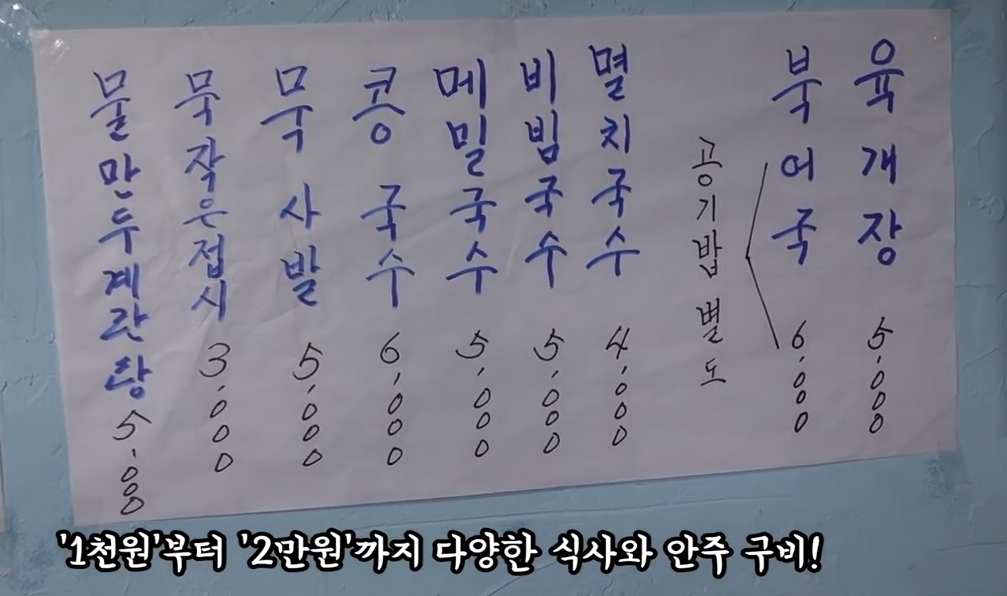 육개장 5,000
북어국 6,000
공기밥 별도
멸치국수 4,000
비빔국수 5,000
메밀국수 5,000
콩국수 6,000
묵사발 5,000
묵작은접시 3,000
물만두계란탕 5,000
'1천원'부터 '2만원'까지 다양한 식사와 안주 구비!